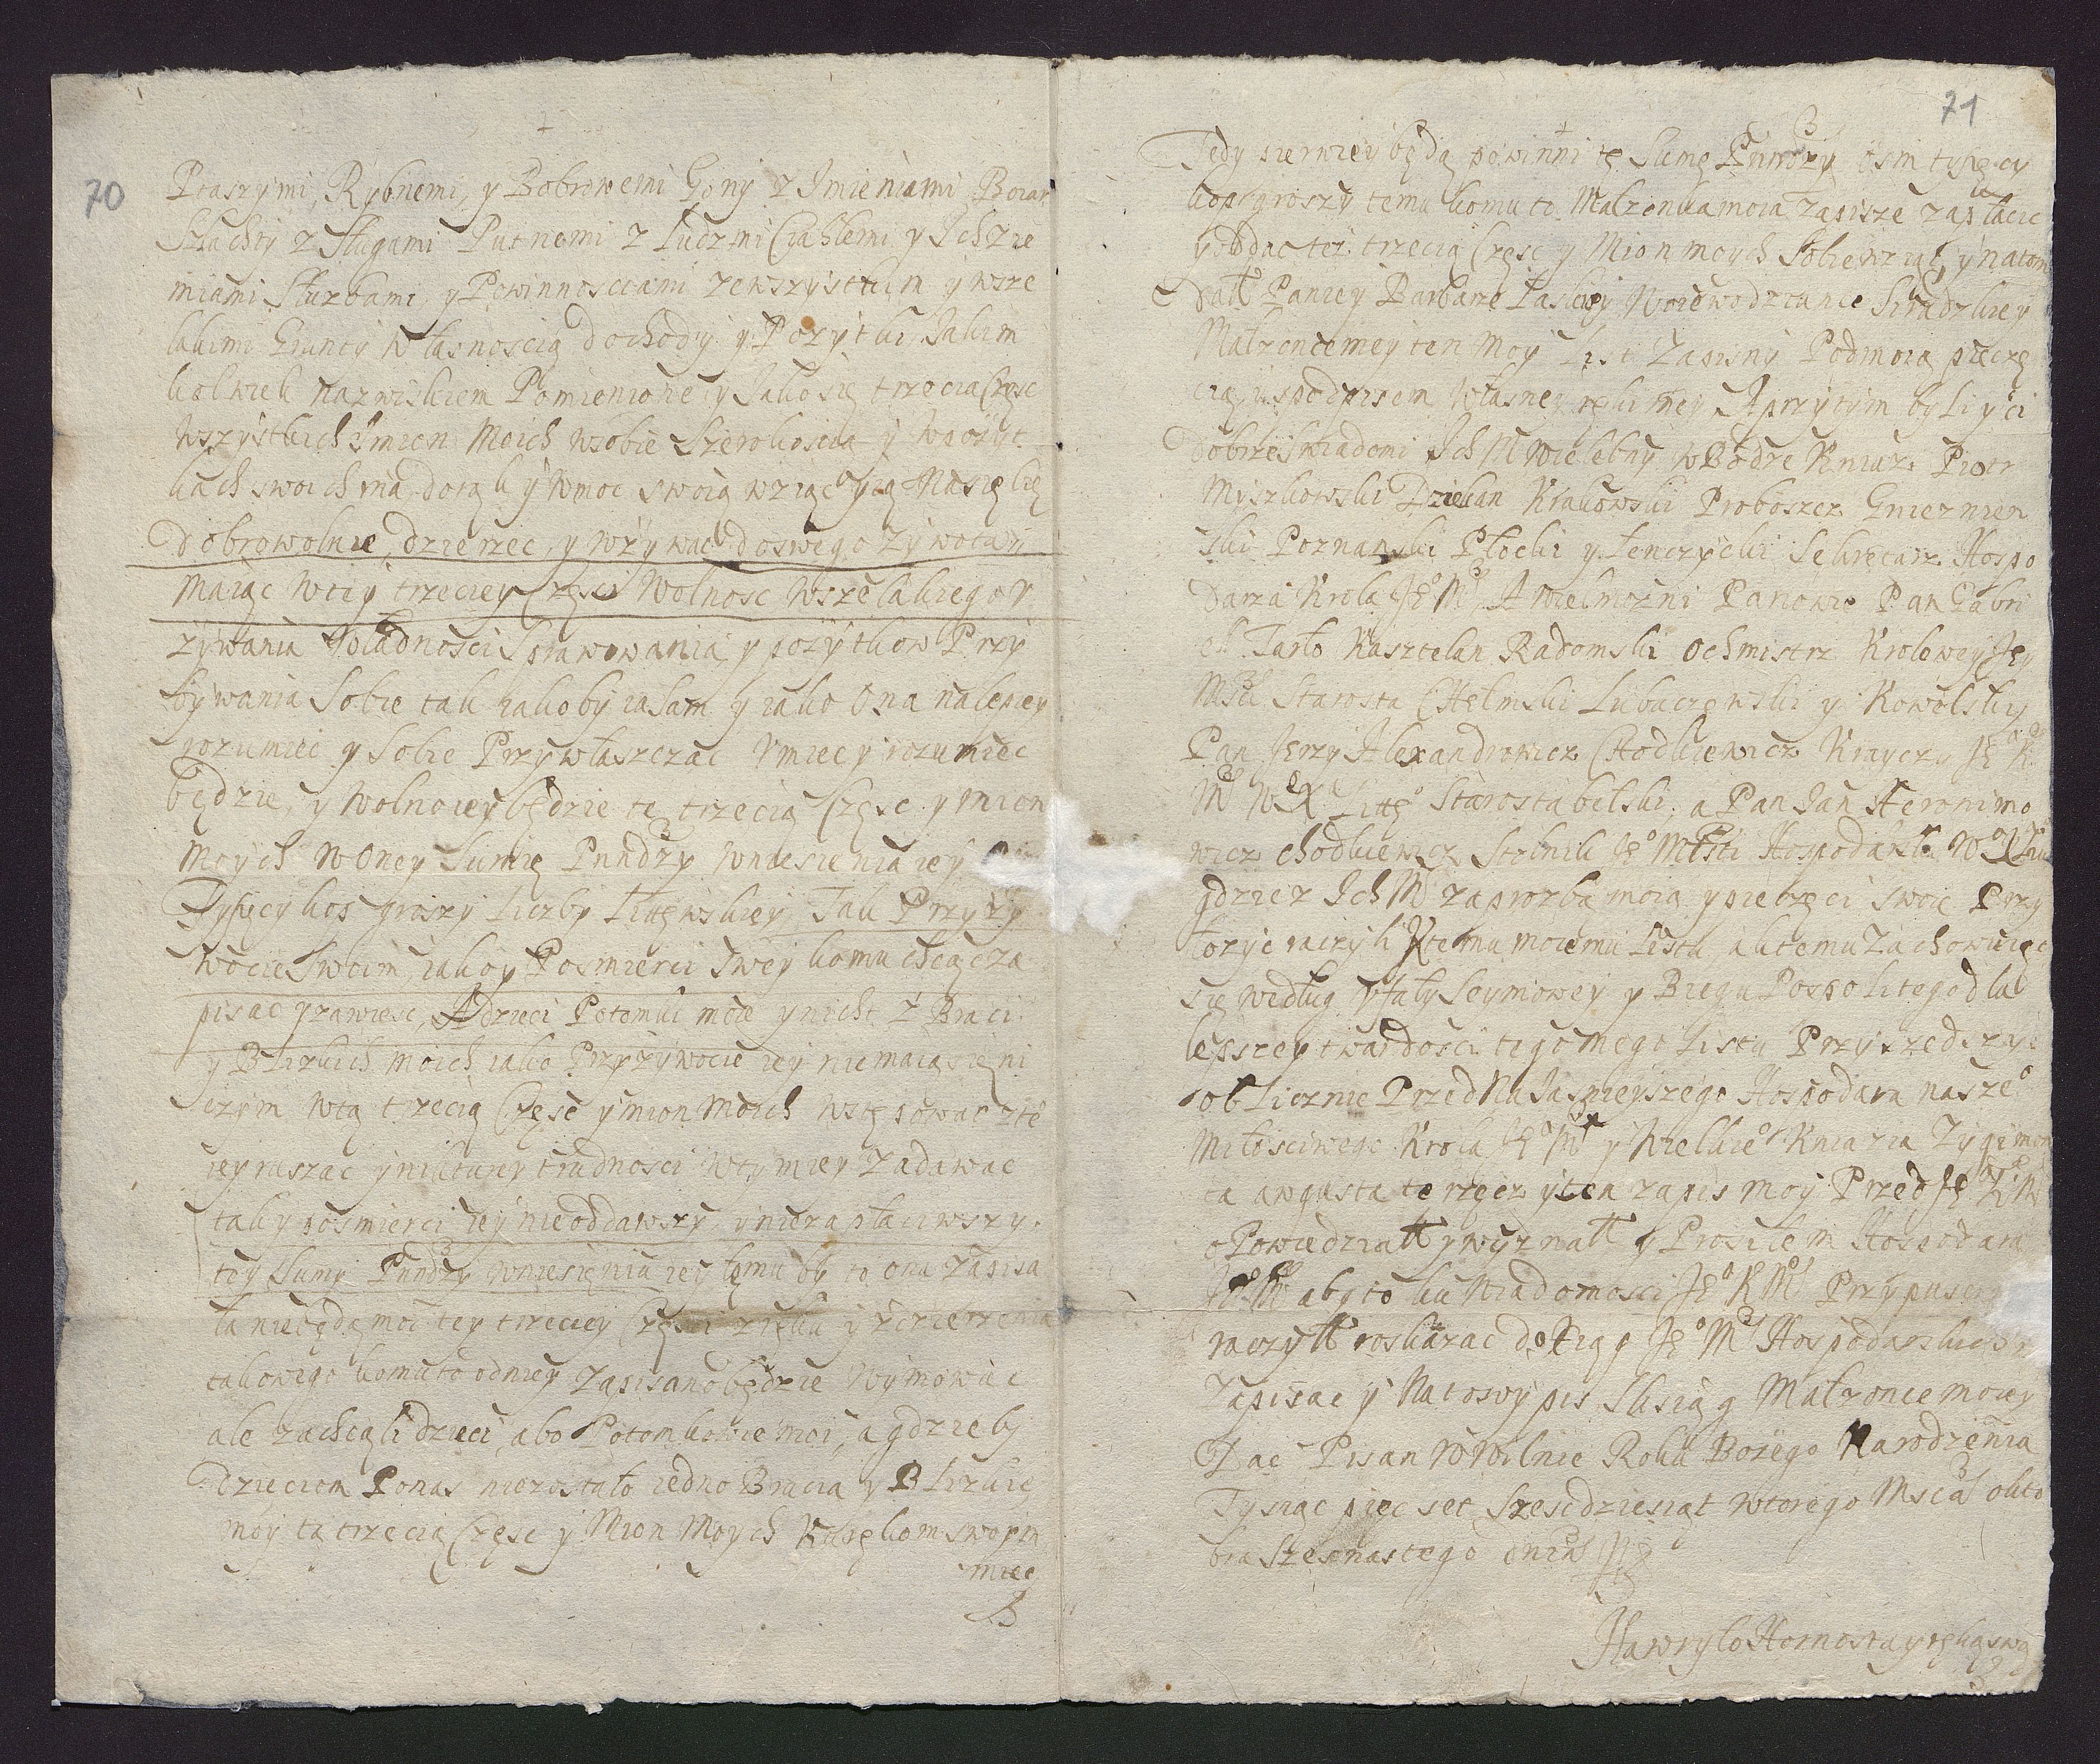 70
Ptaszymi, Rybnemi, y Bobrowemi Gony z Jmieniami Boiar
Szlachty z Sługami Putnemi z Ludzmi Ciahlemi y Ich Zie
miami Słuzbami y Powinnosciami zewszystkim y wsze
lakimi Grunty własnoscią dochody y Pozytki Jakim
kolwiek Nazwiskiem Pomienione y Jako się trzecia Częsc
Wszystkich ymien Moich wsobie Szerokoscia y wpozyt
kach swoich ma dotąk y wmoc swoią wziąc yią Nasię
Dobrowolnie dzierzec, y wzywac doswego Zywota y
Maiąc wtey trzeciey Częsci wolnosc wszelakiego v
zywania Władnosci Sprawowania y pozytkow Przy
bywania Sobie tak iakoby ia sam y iako Ona nalepiey
rozumiec y Sobie Przywłaszczac Vmiec y rozumiec
będzie, y wolno iey będzie te trzecią Częsc ymion
Moych w Oney Sumie Pnndzy wniesienia iey
Tysięcy kop groszy Liczby Litewskiey Tak Przyzy
wocie Swoim, iako y Posmierci Swey komu chcąc za
pisac y zawiesc, A dzieci Potomki moie y nicht z Braci
y Blizkich moich iako Przy zywocie iey nie maią się ni
czym wtą trzecią Częsc ymion Moich wstępowac zte
iey ruszac y nikturey trudnosci wtym iey Zadawac
tak y posmierci iey nieoddawszy, y niezapłaciwszy
tey Sumy Pnndzy wniesienia iey komu by to ona Zapisa
ła niebędą moc tey trzeciey Częsci z ręku y zdzierzenia
takowego komu to odniey Zapisano będzie wymowac
ale zachcąli dzieci, abo Potomkowie moi, a gdzie by
Dzieciom Ponas niezostało iedno Bracia y Blizkie
moy ta trzecią Częsc y Mion Moych Kurękom swoym
miec
71
Tedy pierwiey będą powinni tę Sumę Pnndzy osm tysięcy
kop groszy temu komu to Małzonka moia zapisze zapłacic
y oddac tez trzecią Częsc y Mion moych Sobie wziąc, y na tom
Dałł Paniey Barbarze Łaskiey Woiewodziance Siradzkiey
Małzonce mey ten Moy List Zapisny Podmoią pieczę
cią y spodpisem własney ręki mey A przytym byli y ci
dobrze swiadomi Ich M Wielebny w Bodze Kniaz Piotr
Myszkowski Dziekan Krakowski Proboszcz Gnieznien
ski Poznanski Płocki y Lenczycki Sekretarz Hospo
Dara Krola JE° Mci A wielmozni Panowie Pan Gabri
el Tarło Kasztelan Radomski Ochmistrz Krolowey Jey
Mści Starosta CHełmski Lubaczewski y Kowolski
Pan Jerzy Alexandrowicz CHodkiewicz Krayczy JE K
Mci WXLitg° Starosta belski, a Pan Jan Heronimo
wicz chodkiewicz Stolnik Je° Mści Hospodarski WX Lite
gdzie z Ich M zaprozbą moią y pieczęci swoie Przy
łozyc raczyli Ktemu moiemu Listu, aktemu Zachowuiąc
się według Vfały Seymowey y Biegu Pospolitego dla
lepszey twardosci tego mego Listu Przyszedszy
obLicznie Przed Na Jasnieyszego Hospodara nasze°
Miłosciwego Krola JE° M y Wielkie° Kniazia Zygimon
ta augusta te rzecz y ten zapis moy Przed JE K M
oPowiedziałł y wyznałł y Prosiłem Hospodara
Je° M aby to ku Wiadomosci JE° K M Przypuscic
raczyłł roskazac do Xiąg JE° Mci Hospodarskich
Zapisac y Na to wypis Sksiąg Małzonce moiey
Dac Pisan w Wilnie Roku Bozego Narodzenia
Tysiąc pięc set Szescdziesiąt wtorego Mscá okto
bra Szesnastego dnia
Hawryło Hornostay ręką swą